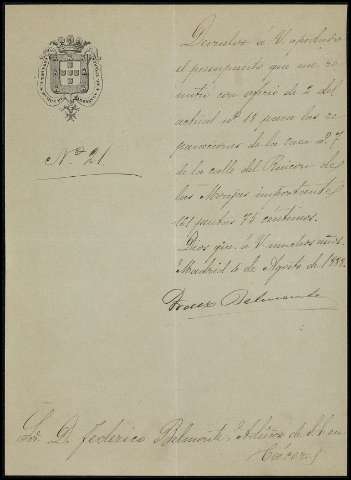 Devuelvo á V. aprobado
el presupuesto que me re
mitió con oficio de 2 del
actual nº 18 para las re
paraciones de la casa nº 7
de la calle del Rincon de
las Monjas importante
pesetas 75 centimos.
Dios gue. á V. muchos años.
Madrid 6 de Agosto de 188
Nº 21
Sr. D. Federico Belmonte, Admor. de S. E. en
Cáceres